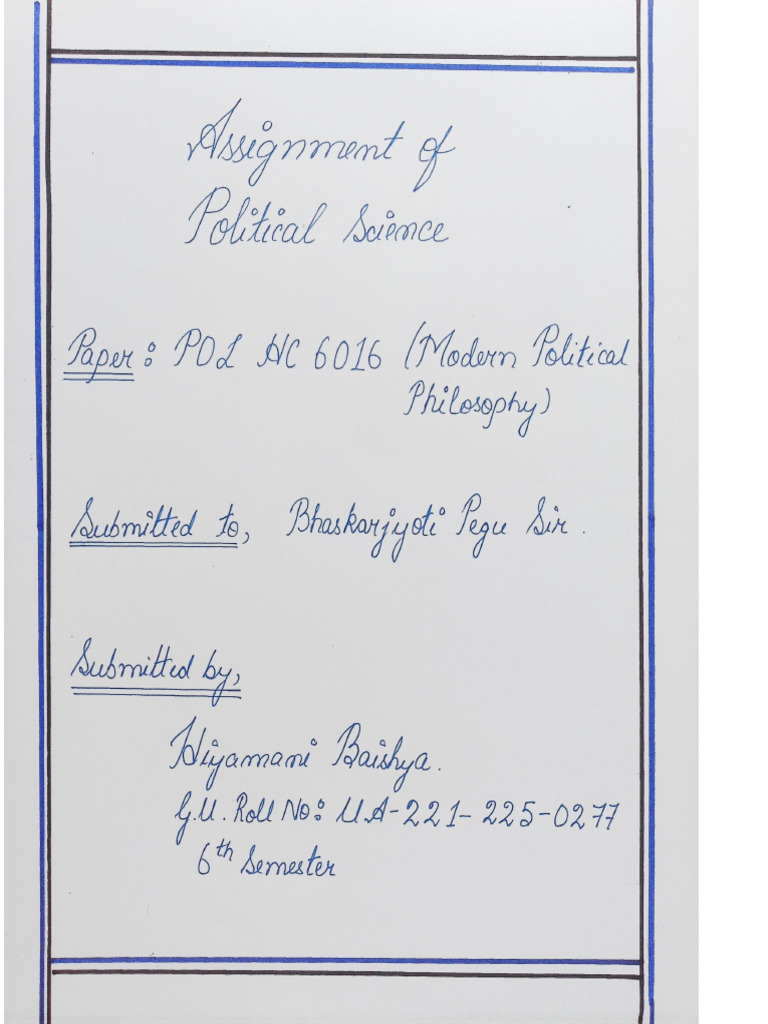 Assignment of
Political Science
Paper: POL HC 6016 (Modern Political
Philosophy)
Submitted to, Bhaskarjyoti Pegu Sir.
Submitted by,
Hiyamani Baishya.
G.U. Roll No: UA-221-225-0277
6th Semester